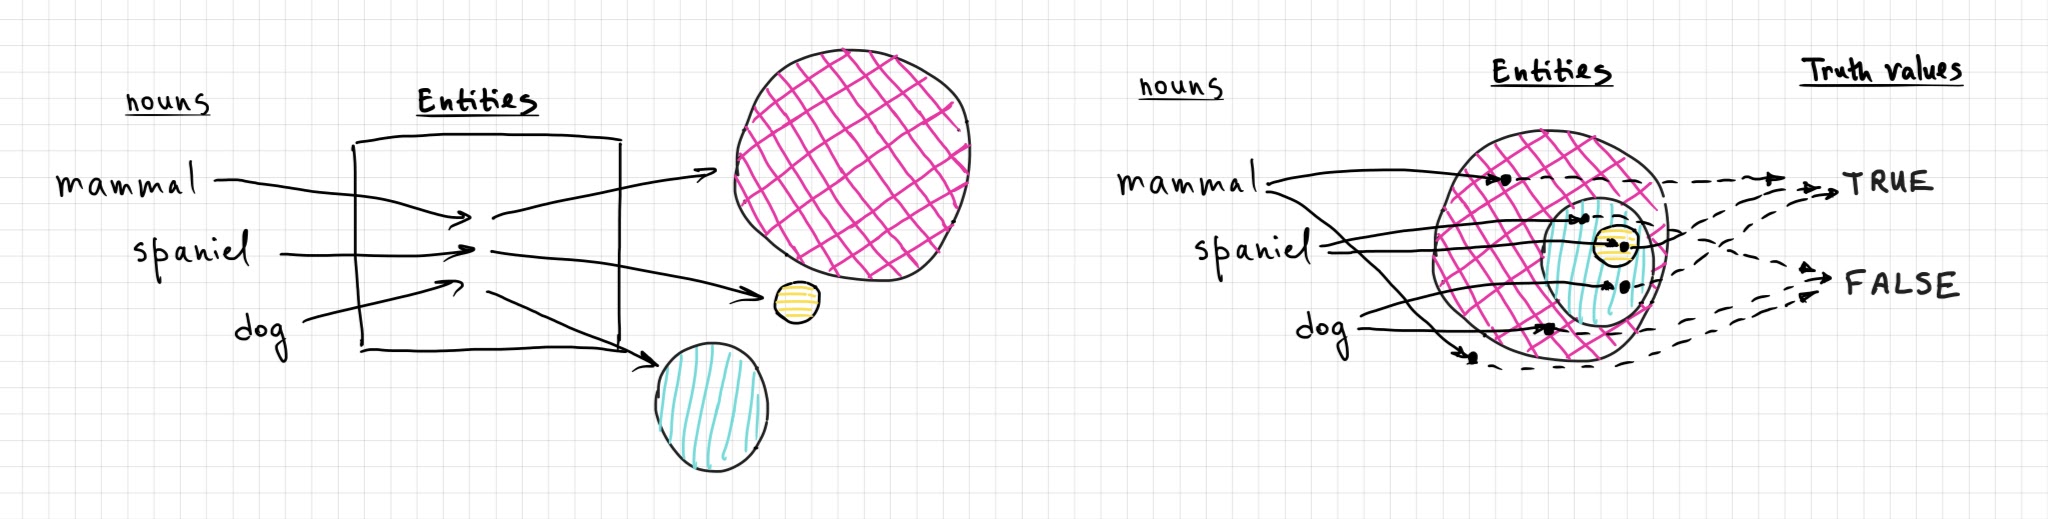 nouns
Entities
mammal
spaniel
dog
nouns
Entities
Truth values
mammal
spaniel
dog
TRUE
FALSE